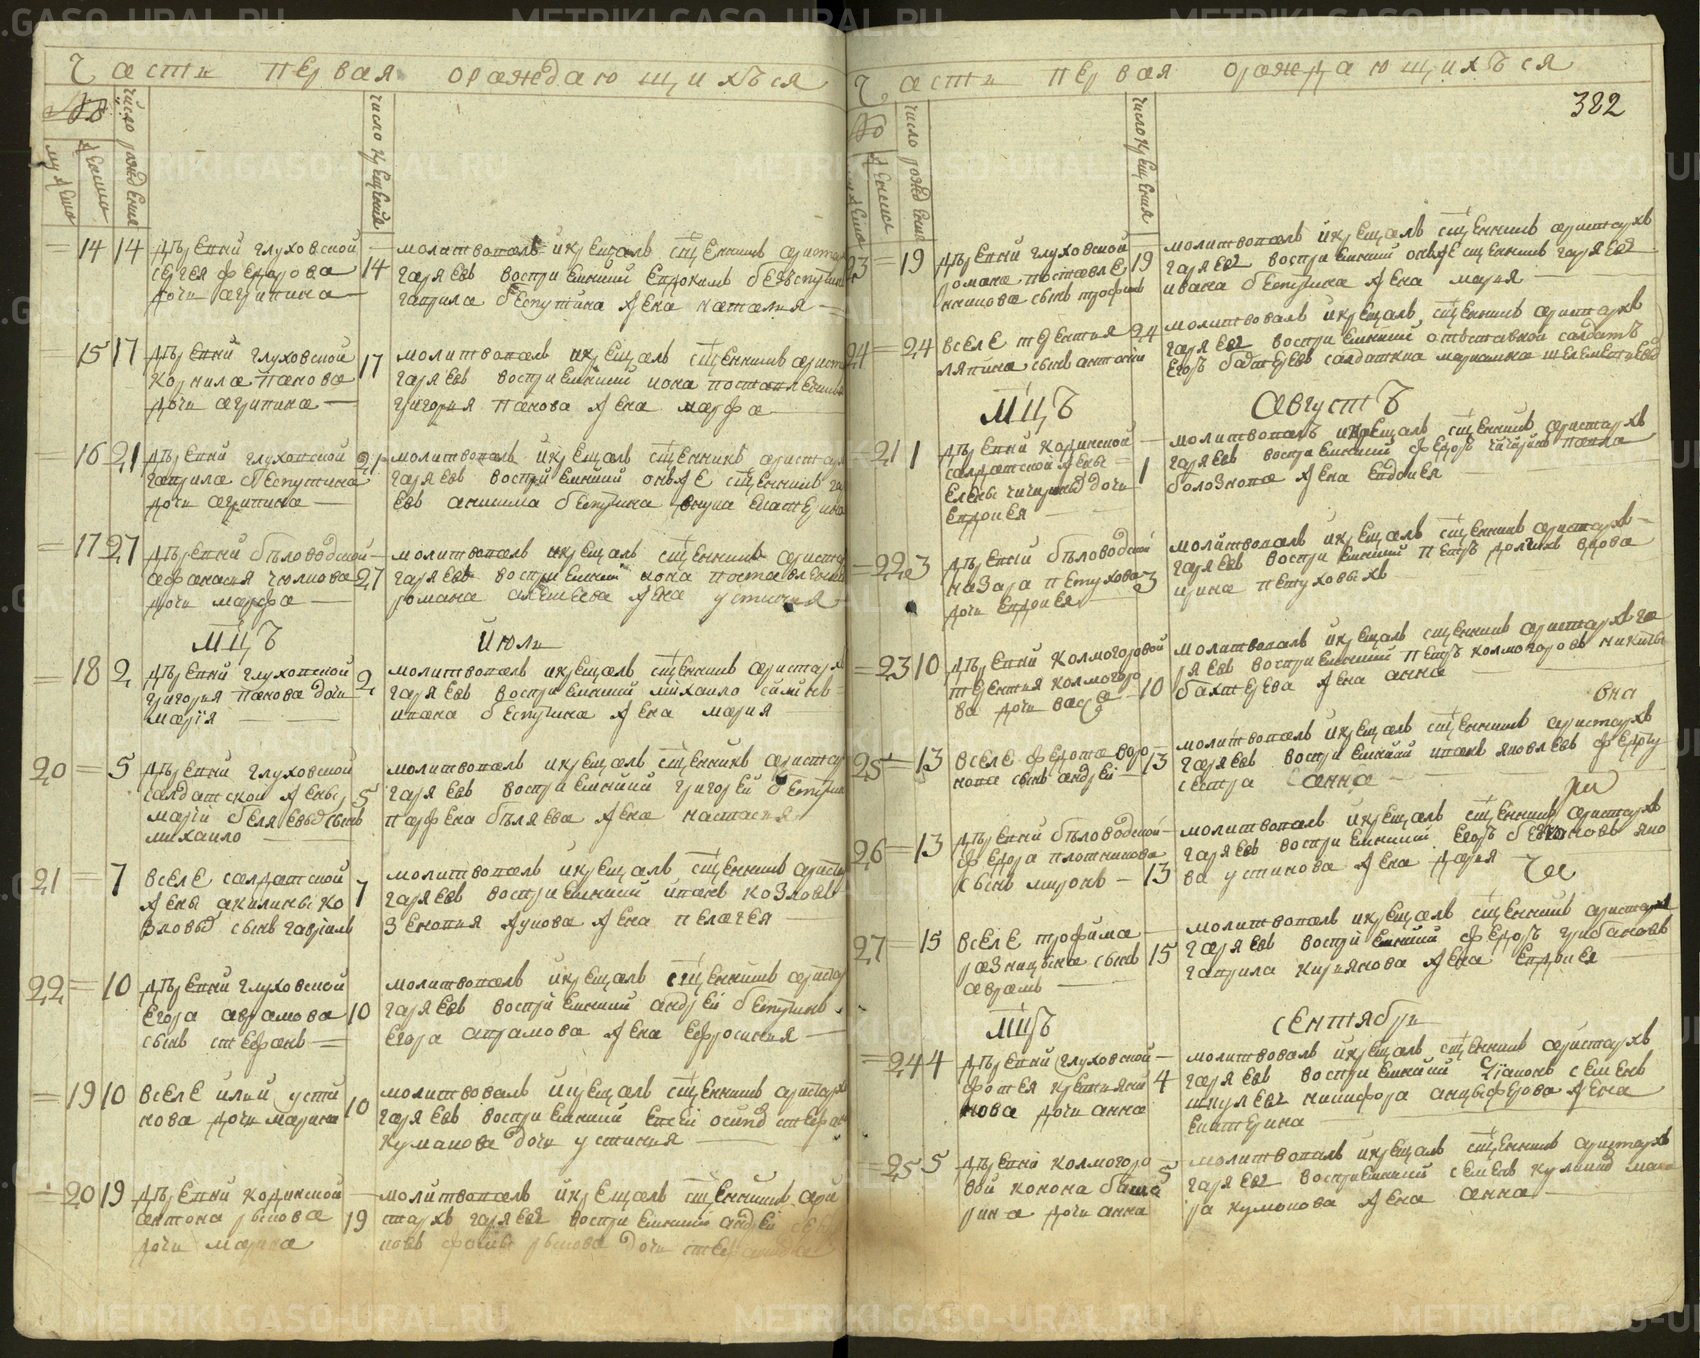 Части первая ораждающихъся
число рождения
число крещения
мужеска
женска
14 14 дѣревни глуховской
сергея федорова
дочи агрипина
14
молитвовалъ икрещалъ сщенникъ ариста
гаряевъ восприемники евдокимъ беспутин
гаврила беспутина жена наталия
15 17 дѣревни глуховской
корнила панова
дочи агрипина
17
молитвовалъ икрещалъ сщенникъ арист
гаряевъ восприемники иона
григория панова жена марфа
16 21 дѣревни глуховской
гаврила беспутина
дочи агрипина
21
молитвовалъ икрещалъ сщенникъ ариста
гаряевъ восприемники онъже сщенникъ га
евъ беспутина внука екатерина
17 27 дѣревни бѣловодской
афанасия чюлкова
дочи марфа
27
молитвовалъ икрещалъ сщенникъ ариста
гаряевъ восприемники иона
романа алексеева жена устиния
мцъ июль
18 2 дѣревни глуховской
григория панова дочи
мария
2
молитвовалъ икрещалъ сщенникъ аристарх
гаряевъ восприемники михаило
ивана беспутина жена мария
20 5 дѣревни глуховской
салдатской жены
марии беляевы сынъ
михаило
5
молитвовалъ икрещалъ сщенникъ аристар
гаряевъ восприемники григорей беспутин
парфена бѣляева жена настасия
21 7 вселе салдатской
жены акилины ко
зловы сынъ гаврилъ
7
молитвовалъ икрещалъ сщенникъ ариста
гаряевъ восприемники иванъ козловъ
зеновия жукова жена пелагея
22 10 дѣревни глуховской
егора аврамова
сынъ стефанъ
10
молитвовалъ икрещалъ сщенникъ ариста
гаряевъ восприемники андрей беспутинъ
егора аврамова жена ефросиния
19 10 вселе илии усти
нова дочи марина
10
молитвовалъ икрещалъ сщенникъ аристарх
гаряевъ восприемники евсей стефан
куманова дочи устиния
20 19 дѣревни кодинской
антона рыкова
дочи марина
19
молитвовалъ икрещалъ сщенникъ ари
стархъ гаряевъ восприемники андрей
рыкова дочи
Части первая ораждающихъся
382
число рождения
число крещения
женска
23 19 дѣревни глуховской
романа поставле
нникова сынъ трофимъ
19
молитвовалъ икрещалъ сщенникъ аристархъ
гаряевъ восприемники онъже сщенникъ гаряевъ
ивана беспутина жена мария
24 24 вселе терентия
ляпина сынъ антоний
24
молитвовалъ икрещалъ сщенникъ аристархъ
гаряевъ восприемники отставной салдатъ
егоръ бахтеревъ салдатка марианна
мцъ августъ
21 1 дѣревни кодинской
салдатской жены
елены чичерины дочи
евдокея
1
молитвовалъ икрещалъ сщенникъ аристархъ
гаряевъ восприемники федоръ чичеринъ павла
болознова жена евдокея
22 3 дѣревни бѣловодской
назара петухова
дочи евдокея
3
молитвовалъ икрещалъ сщенникъ аристархъ
гаряевъ восприемники петръ долгихъ вдова
ирина петуховыхъ
23 10 дѣревни колмогоровой
терентия колмогоро
ва дочи васса
10
молитвовалъ икрещалъ сщенникъ аристархъ га
ряевъ восприемники петръ колмогоровъ никиты
бахтерева жена анна
25 13 вселе федота воро
нова сынъ андрей
13
молитвовалъ икрещалъ сщенникъ аристархъ
гаряевъ восприемники иванъ яковлевъ
сестра анна
26 13 дѣревни бѣловодской
федора плотникова
сынъ миронъ
13
молитвовалъ икрещалъ сщенникъ аристархъ
гаряевъ восприемники егоръ яко
ва устинова жена дария
27 15 вселе трофима
разницына сынъ
аврамъ
15
молитвовалъ икрещалъ сщенникъ аристархъ
гаряевъ восприемники федоръ грибановъ
гаврила кирьянова жена евдокея
мцъ сентябрь
24 4 дѣревни глуховской
фотея
нова дочи анна
4
молитвовалъ икрещалъ сщенникъ аристархъ
гаряевъ восприемники семенъ
никифора анцыферова жена
екатерина
25 5 дѣревни колмогоро
вой конона
рина дочи анна
5
молитвовалъ икрещалъ сщенникъ аристархъ
гаряевъ восприемники семенъ
ра куманова жена анна